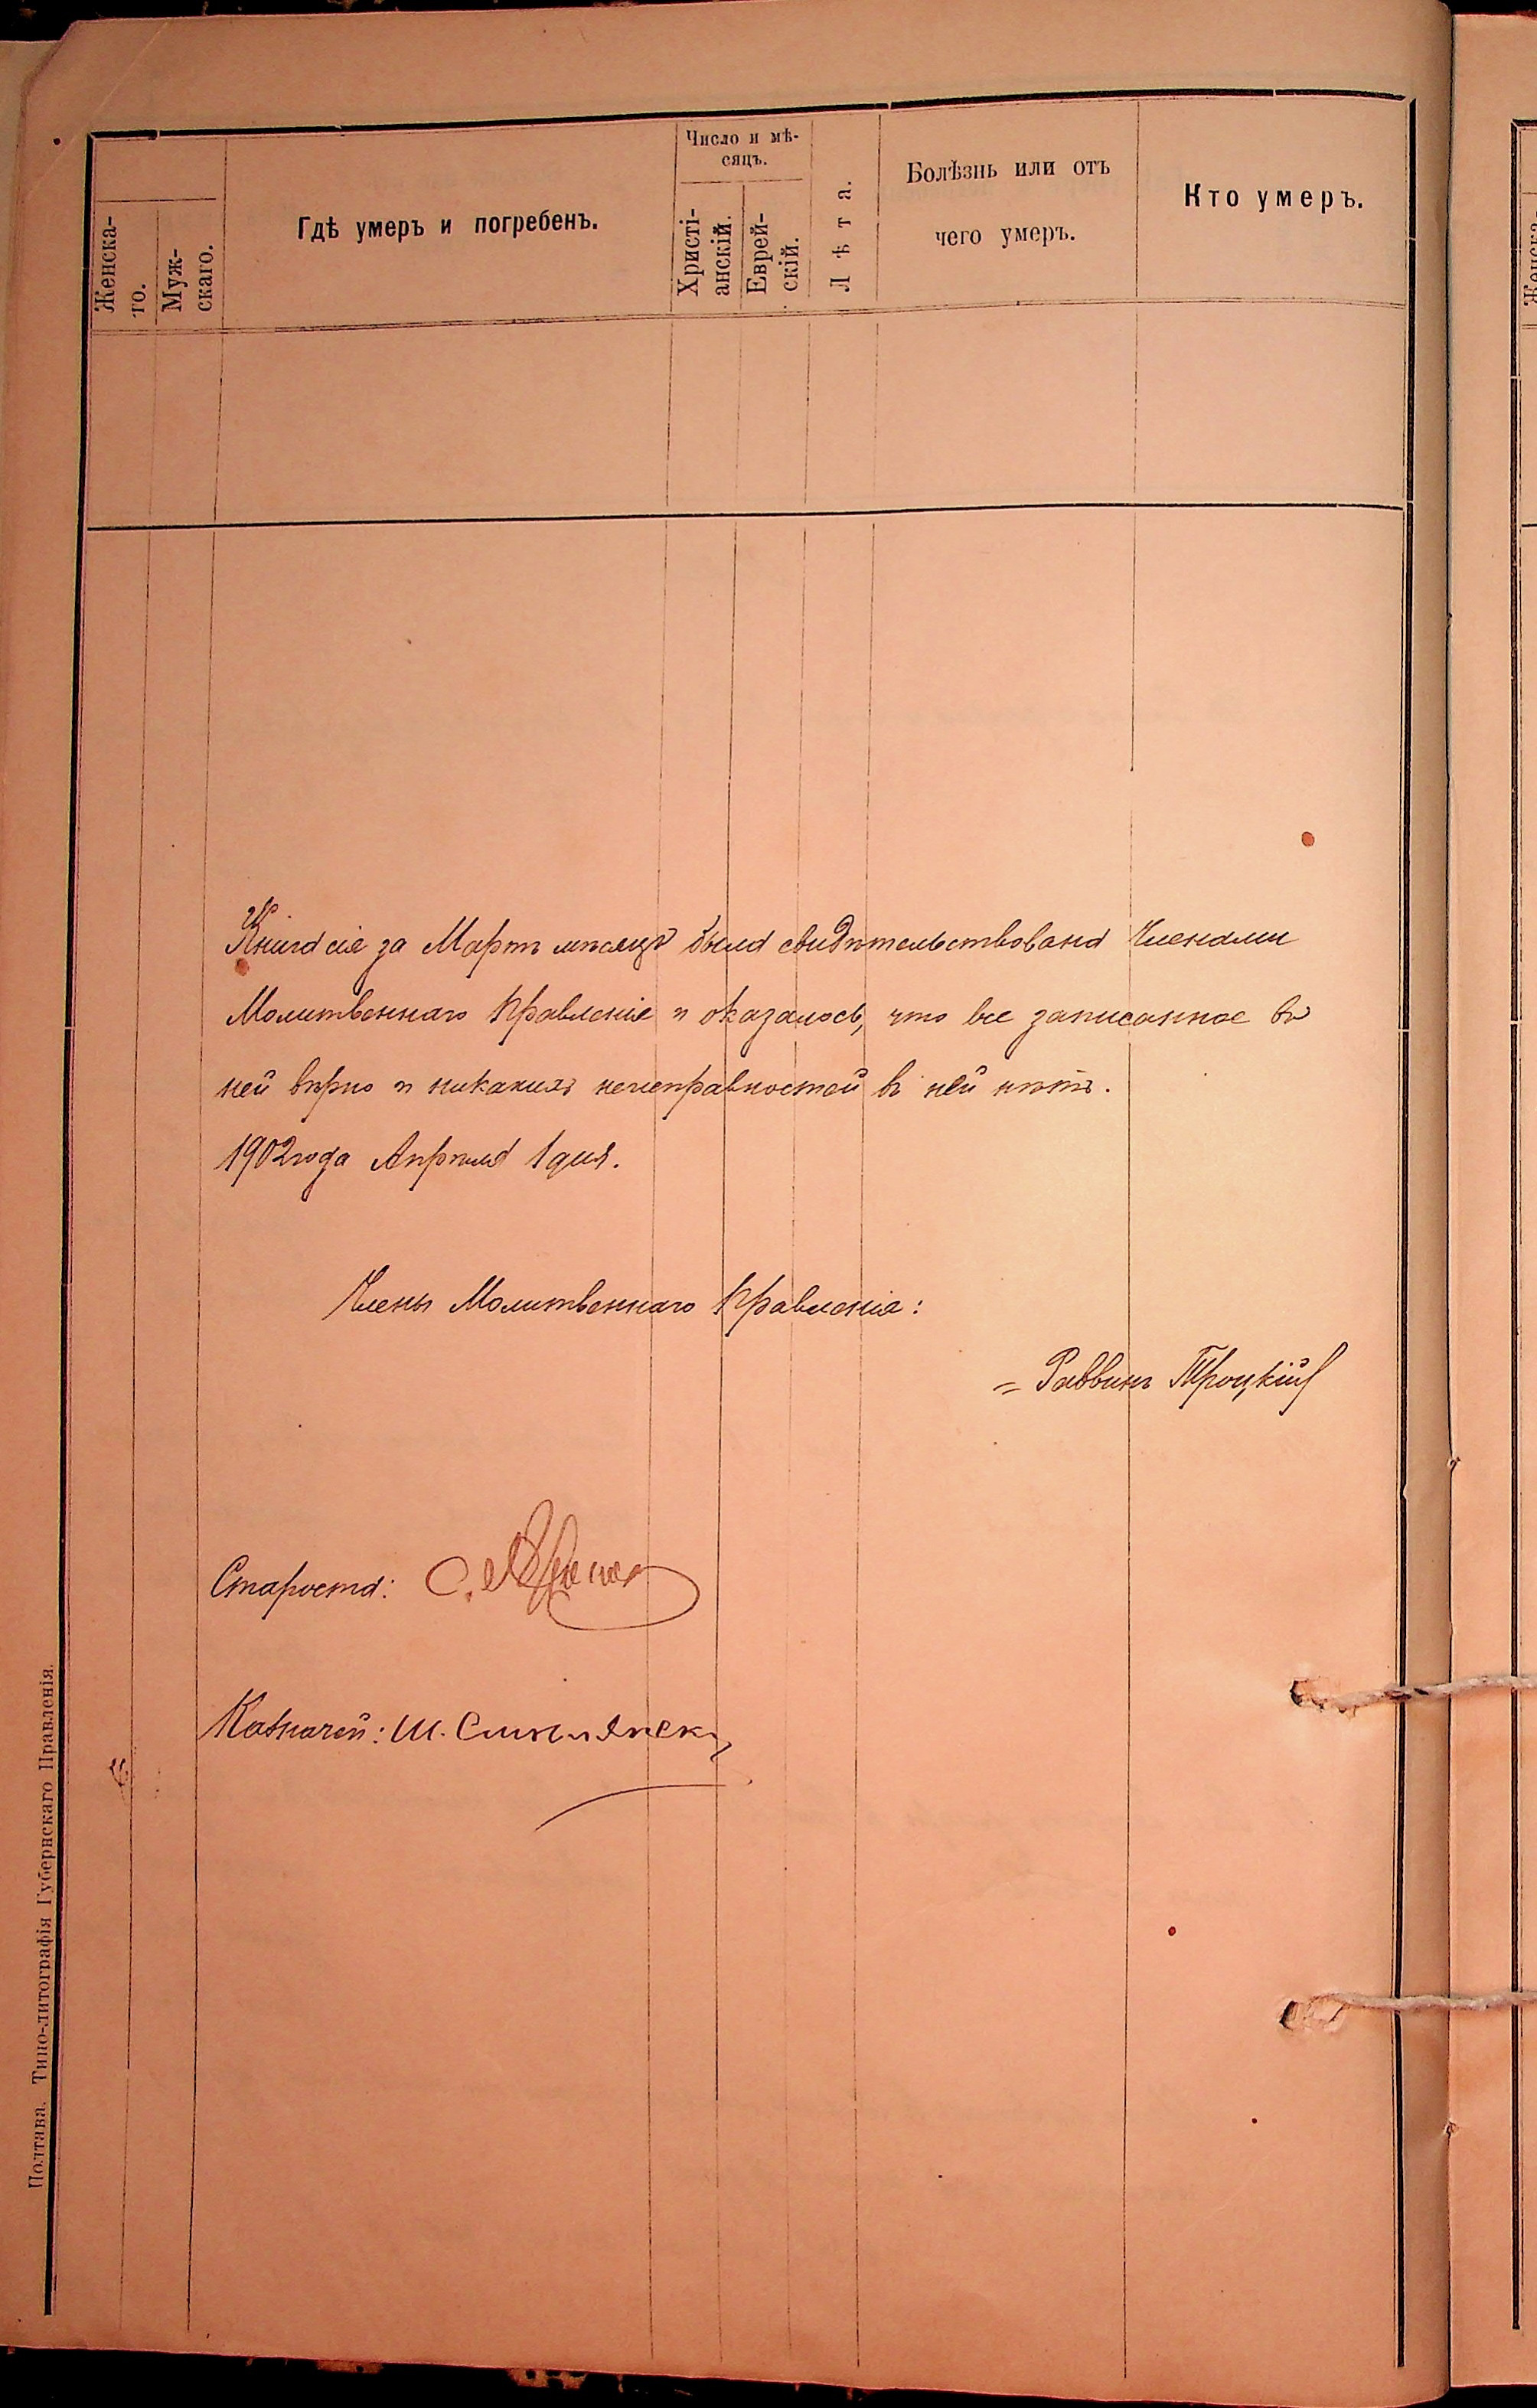 Женска-
го.
Муж-
скаго.
Гдѣ умеръ и погребенъ.
Число и мѣ-
сяцъ.
Христі-
анскій.
Еврей-
скій.
Лѣта.
Болѣзнь или отъ
чего умеръ.
Кто умеръ.
Книга сія за Мартъ мѣсяцъ была свидѣтельствована Членами
Молитвеннаго Правленія и оказалось, что все записанное въ
ней вѣрно и никакихъ неисправностей въ ней нѣтъ.
1902 года Апрѣля 1 дня.
Члены Молитвеннаго Правленія:
= Раввинъ Троцкій
Староста: С.
Казначей: Ш.
Полтава. Типо-литографія Губернскаго Правленія.